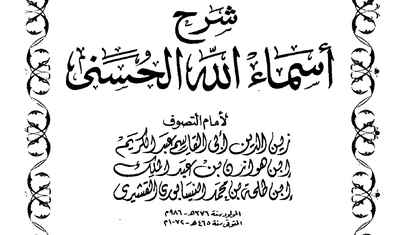 شرح
أسماء الله الحسنى
لأمام التصوف
زين الدين أبي القاسم عبد الكريم
ابن هوازن بن عبد الملك
ابن طلحة بن محمد النيسابوري القشيري
المولود سنة ٣٧٦هـ - ٩٨٦م
المتوفى سنة ٤٦٥هـ - ١٠٧٢م